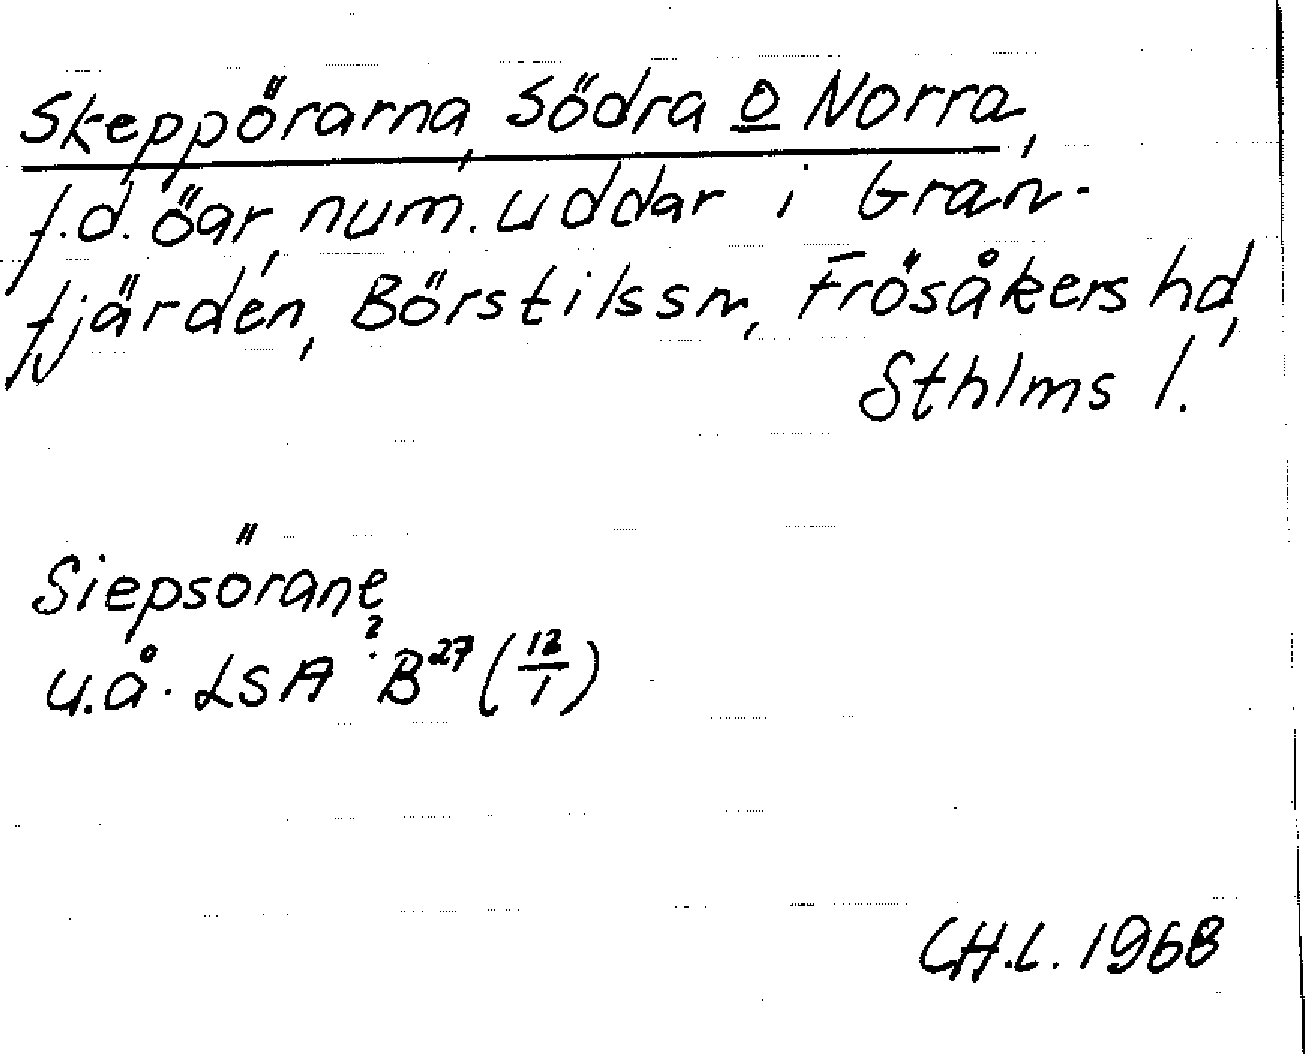 Skeppörarna, Södra o Norra,
f.d. öar, num. uddar i Gran-
fjärden, Börstils sn, Frösåkers hd,
Sthlms l.
Siepsörane
u.å. LSA B²⁷ (12/1)
C.H.L. 1968